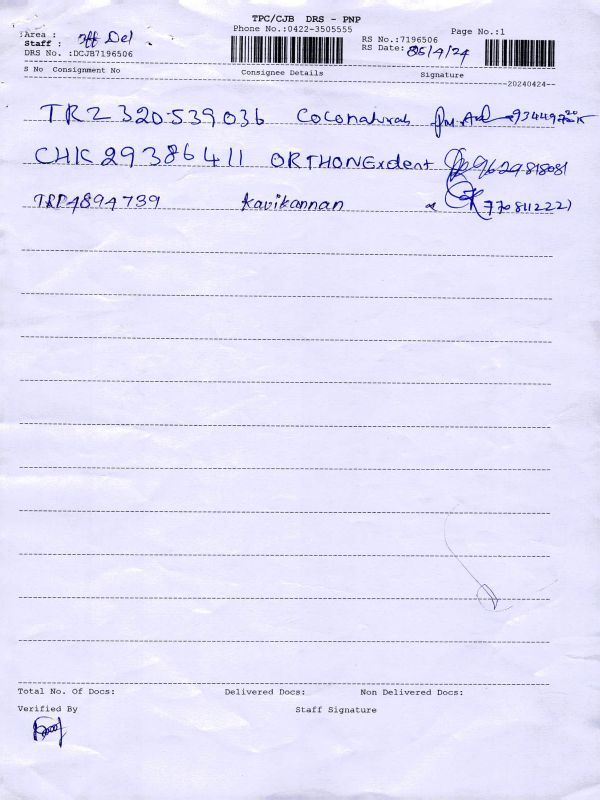 TPC/CJB DRS - PNP
Area : Off Del Phone No.:0422-3505555 Page No.:1
Staff : RS No.:7196506
DRS No. :DCJB7196506 RS Date: 26/4/24
S No Consignment No Consignee Details Signature
20240424
TRZ 320539036 Coconatural
CHK 29386411 ORTHONExdent 9629818081
TRP4894739 Kavikannan 7708112221
Total No. Of Docs: Delivered Docs: Non Delivered Docs:
Verified By Staff Signature